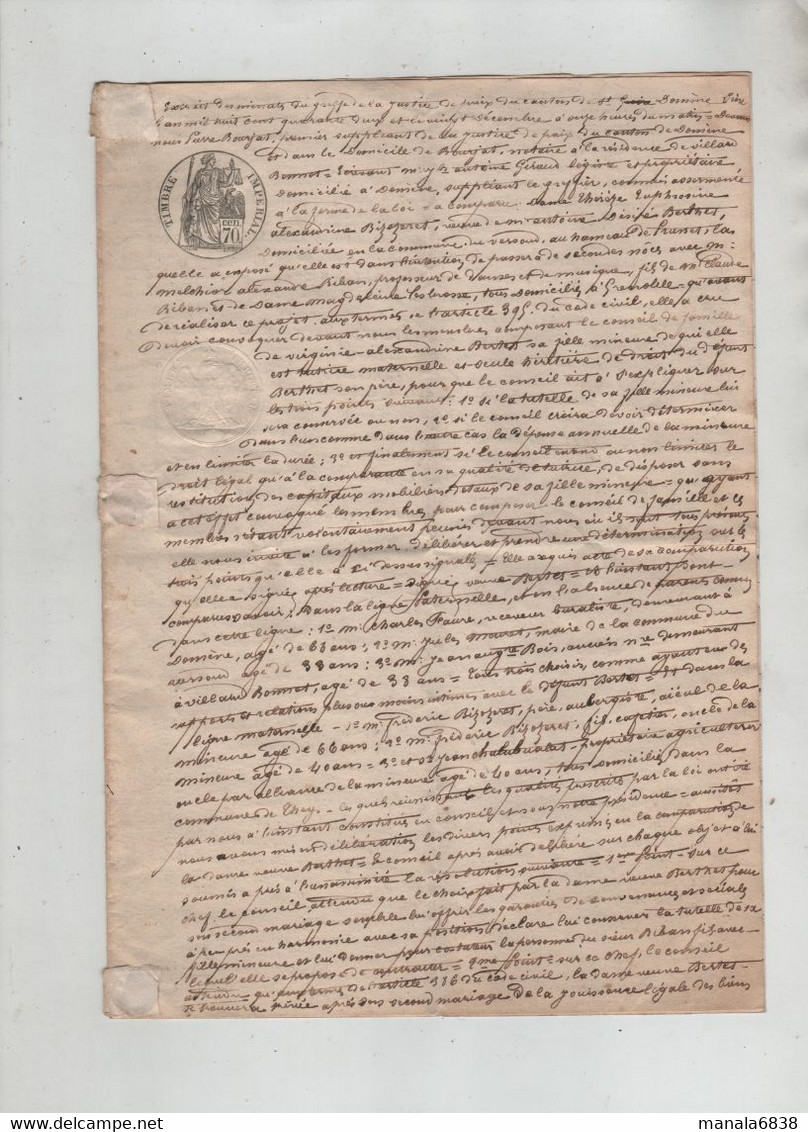 Extrait des minutes du greffe de la justice de paix du canton de Domène Isère
L'an mil huit cent quarante deux et le vingt Décembre à onze heures du matin = Devant
nous Pierre Bourjat, premier suppléant de la justice de paix du canton de Domène
Et dans le Domicile de Bourjat, notaire à la résidence de villard
Bonnot = Ecrivant mr antoine Giraud et propriétaire
domicilié à Domène, suppléant le greffier, commis assermenté
à la forme de la loi = a comparu Dame Thérèze Euphrosine
alexandrine Bizozeret, veuve de mr antoine Désiré Berthet,
Domiciliée en la commune du versoud, au hameau de, la
quelle a exposé qu'elle est dans l'intention de passer à de secondes nôces avec mr
melchior alexandre Riban, professeur de Danses et de musique, fils de mr Claude
Riban et de Dame Magdeleine, tous Domiciliés à Grenoble = qu'avant
de réaliser ce projet aux termes de l'article 395 du code civil, elle a cru
devoir convoquer devant nous les membres composant le conseil de famille
de virginie-alexandrine Berthet sa fille mineure de qui elle
est tutrice maternelle et seule héritière de droit du défunt
Berthet son père, pour que le conseil ait à s'expliquer sur
les trois points suivants : 1o si la tutelle de sa fille mineure lui
sera conservée ou non, 2o si le conseil croira devoir déterminer
dans l'un comme dans l'autre cas la dépense annuelle de la mineure
et en limiter la durée ; 3o et finalement si le conseil entend ou non limiter le
droit légal qu'a la comparante en sa qualité de tutrice, de disposer sans
restitution des capitaux mobiliers de sa fille mineure = qu'ayant
à cet effet convoqué les membres pour composer le conseil de famille et ces
membres s'étant volontairement réunis devant nous où ils sont tous présents
elle nous invite à les former délibérer et prendre une détermination sur les
trois points qu'elle a ci dessus signalés = Elle a requis acte de sa comparution
qu'elle a signée après lecture = Signé veuve Berthet = Et à l'instant sont
comparus savoir ; Dans la ligne Paternelle, et en l'absence de parents connus
dans cette ligne : 1o mr Charles Faure, receveur buraliste, demeurant à
Domène, agé de 63 ans ; 2o mr Jules, maire de la commune du
versoud agé de 38 ans ; 3o mr Jean Bois, ancien nre demeurant
à villard Bonnot, agé de 38 ans = tous trois choisis, comme ayant eu des
rapports et relations plus ou moins intimes avec le défunt Berthet = Et dans la
ligne maternelle - 1o mr frédéric Bizozeret, père, aubergiste, aïeul de la
mineure agé de 66 ans ; 2o mr frédéric Bizozeret, fils, cafetier, oncle de la
mineure agé de 40 ans = 3o et sr Jean propriétaire agriculteur
oncle par alliance de la mineure agé de 40 ans, tous domiciliés dans la
commune de Theys - les quels réunissant les qualités prescrites par la loi ont été
par nous à l'instant constitués en conseil et sous notre présidence = aussitôt
nous avons mis en délibération les divers points exprimés en la comparution de
la dame veuve Berthet = Le conseil après avoir délibéré sur chaque objet à lui
soumis a pris à l'unanimité la résolution suivante = 1er Point - sur ce
chef le conseil attendu que le choix fait par la dame veuve Berthet pour
son second mariage semble lui offrir les garanties de convenances et sociales
à peu près en harmonie avec sa position, déclare lui conserver la tutelle de sa
fille mineure et lui donner pour cotuteur la personne du sieur Riban fils avec
lequel elle se propose de contracter = 2me Point = sur ce chef le conseil
attendu qu'aux termes de l'article 386 du code civil, la dame veuve Berthet
se trouvera privée après son second mariage de la jouissance légale des biens
TIMBRE IMPÉRIAL
70 cen.
manala6838